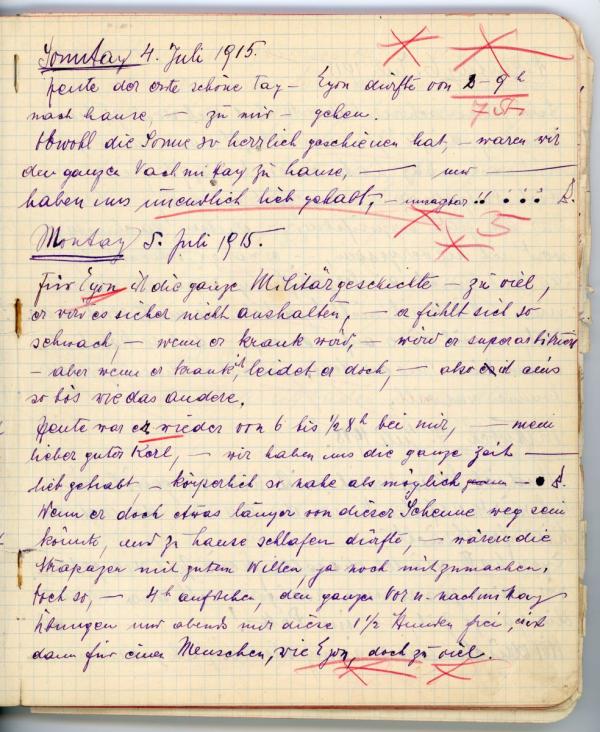 Sonntag 4. Juli 1915.
Heute der erste schöne Tag – Egon dürfte von 2–9 h
7 St
nach hause, — zu mir – gehen.
Obwohl die Sonne so herzlich geschienen hat, – waren wir
den ganzen Nachmittag zu hause, — und —
haben uns unendlich lieb gehabt, – unsagbar !!
5
Montag 5. Juli 1915.
Für Egon ist die ganze Militärgeschichte – zu viel,
er wird es sicher nicht aushalten, – er fühlt sich so
schwach, – wenn er krank wird, – wird er superarbitriert
– aber wenn er krank ist, leidet er doch, – also eins
so bös wie das andere.
Heute war er wieder von 6 bis ½ 8 h bei mir, – mein
lieber guter Kerl, – wir haben uns die ganze Zeit —
lieb gehabt, – körperlich so nahe als möglich
Wenn er doch etwas länger von dieser Scheune weg sein
könnte, und zu hause schlafen dürfte, – wären die
Strapazen mit guten Willen, ja noch mitzumachen.
Doch so, – 4 h aufstehen, den ganzen Vor u. nachmittag
Übungen und abends nur diese 1 ½ Stunden frei, ist
dann für einen Menschen, wie Egon, doch zu viel.